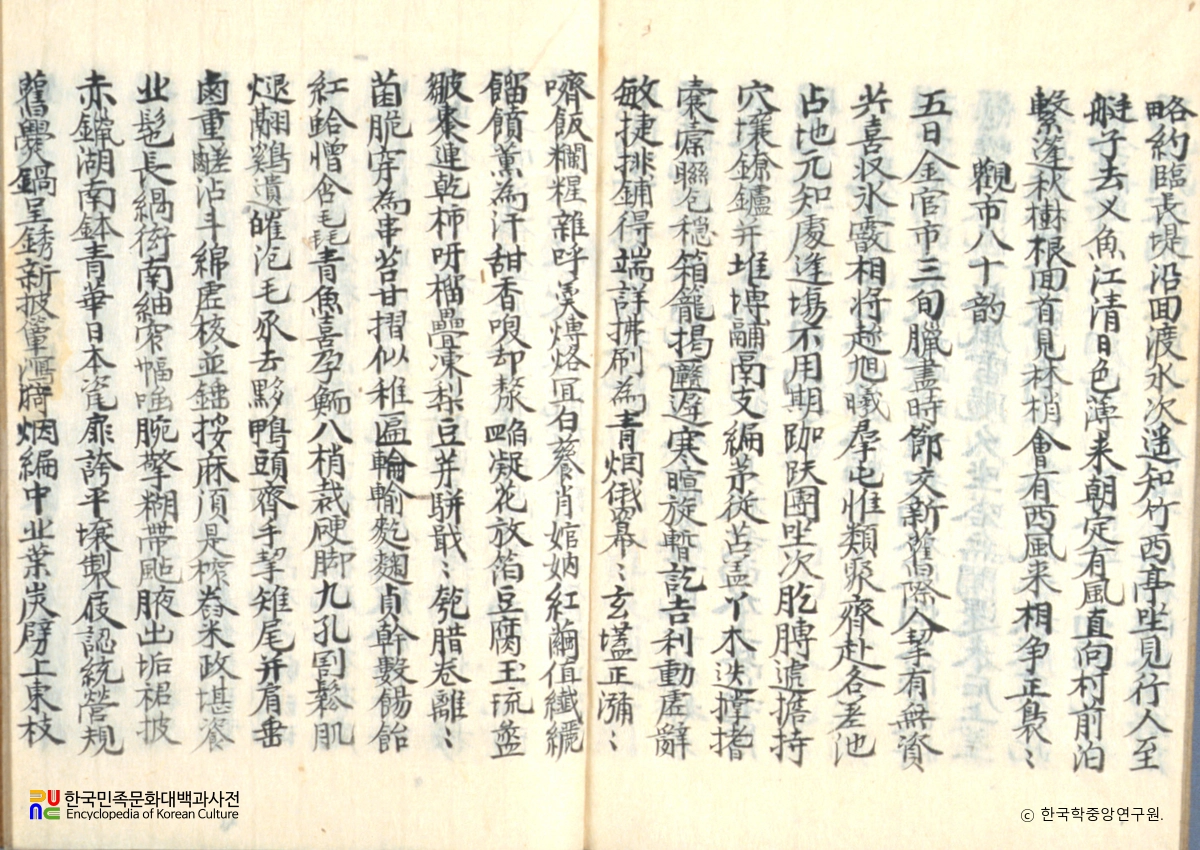 略約臨長堤沿回渡水次遥知竹西亭坐見行人至
艇子去乂魚江清日色薄来朝定有風直向村前泊
繫逢秋樹根回首見林梢會有西風来相争正裊〻
觀市八十韵
五日金官市三旬臘盡時節交新舊際人挈有無資
共喜収氷霰相将趁旭曦羣屯惟類聚齊赴各差池
占地元知處逢場不用期跏趺團坐次肐膊遞擔持
穴壤鐐鑪并堆塼鬴鬲支編茅從苫盖丫木迭撑搘
囊席聯包穏箱籠揭遅寒暄旋暫訖吉利動虚辭
敏捷排鋪得端詳拂刷為青烟俄羃〻玄壒正瀰〻
嚌飯糷糧雜呼羮煿烙冝白餐肖婠妠紅繭值纖纚
餾饙薫為汗甜香嗅却漦凝花放箔豆腐玉流盤
皺棗連乾柿呀榴疊凍梨豆芽駢戢〻匏腊卷離〻
菌脆穿為串苔甘摺似稚匾輪輸麧麹貞幹數餳飴
紅蛤憎含毛毨青魚喜孕鮞八梢裁硬脚九孔割鬆肌
煺翮鷄遺皠泡毛豕去黟鴨頭齊手挈雉尾并肩垂
鹵重醝沾斗綿虚核並錘按麻須是榨舂米政堪餈
北髢長緺衒南紬窄幅嗤腕擎糊帶颭腋出垢裙披
赤鑞湖南鉢青華日本甆扉誇平壤製屐認統營規
舊爨鍋呈銹新披簞烟編中北業炭劈上東枝
한국민족문화대백과사전
Encyclopedia of Korean Culture
ⓒ 한국학중앙연구원.